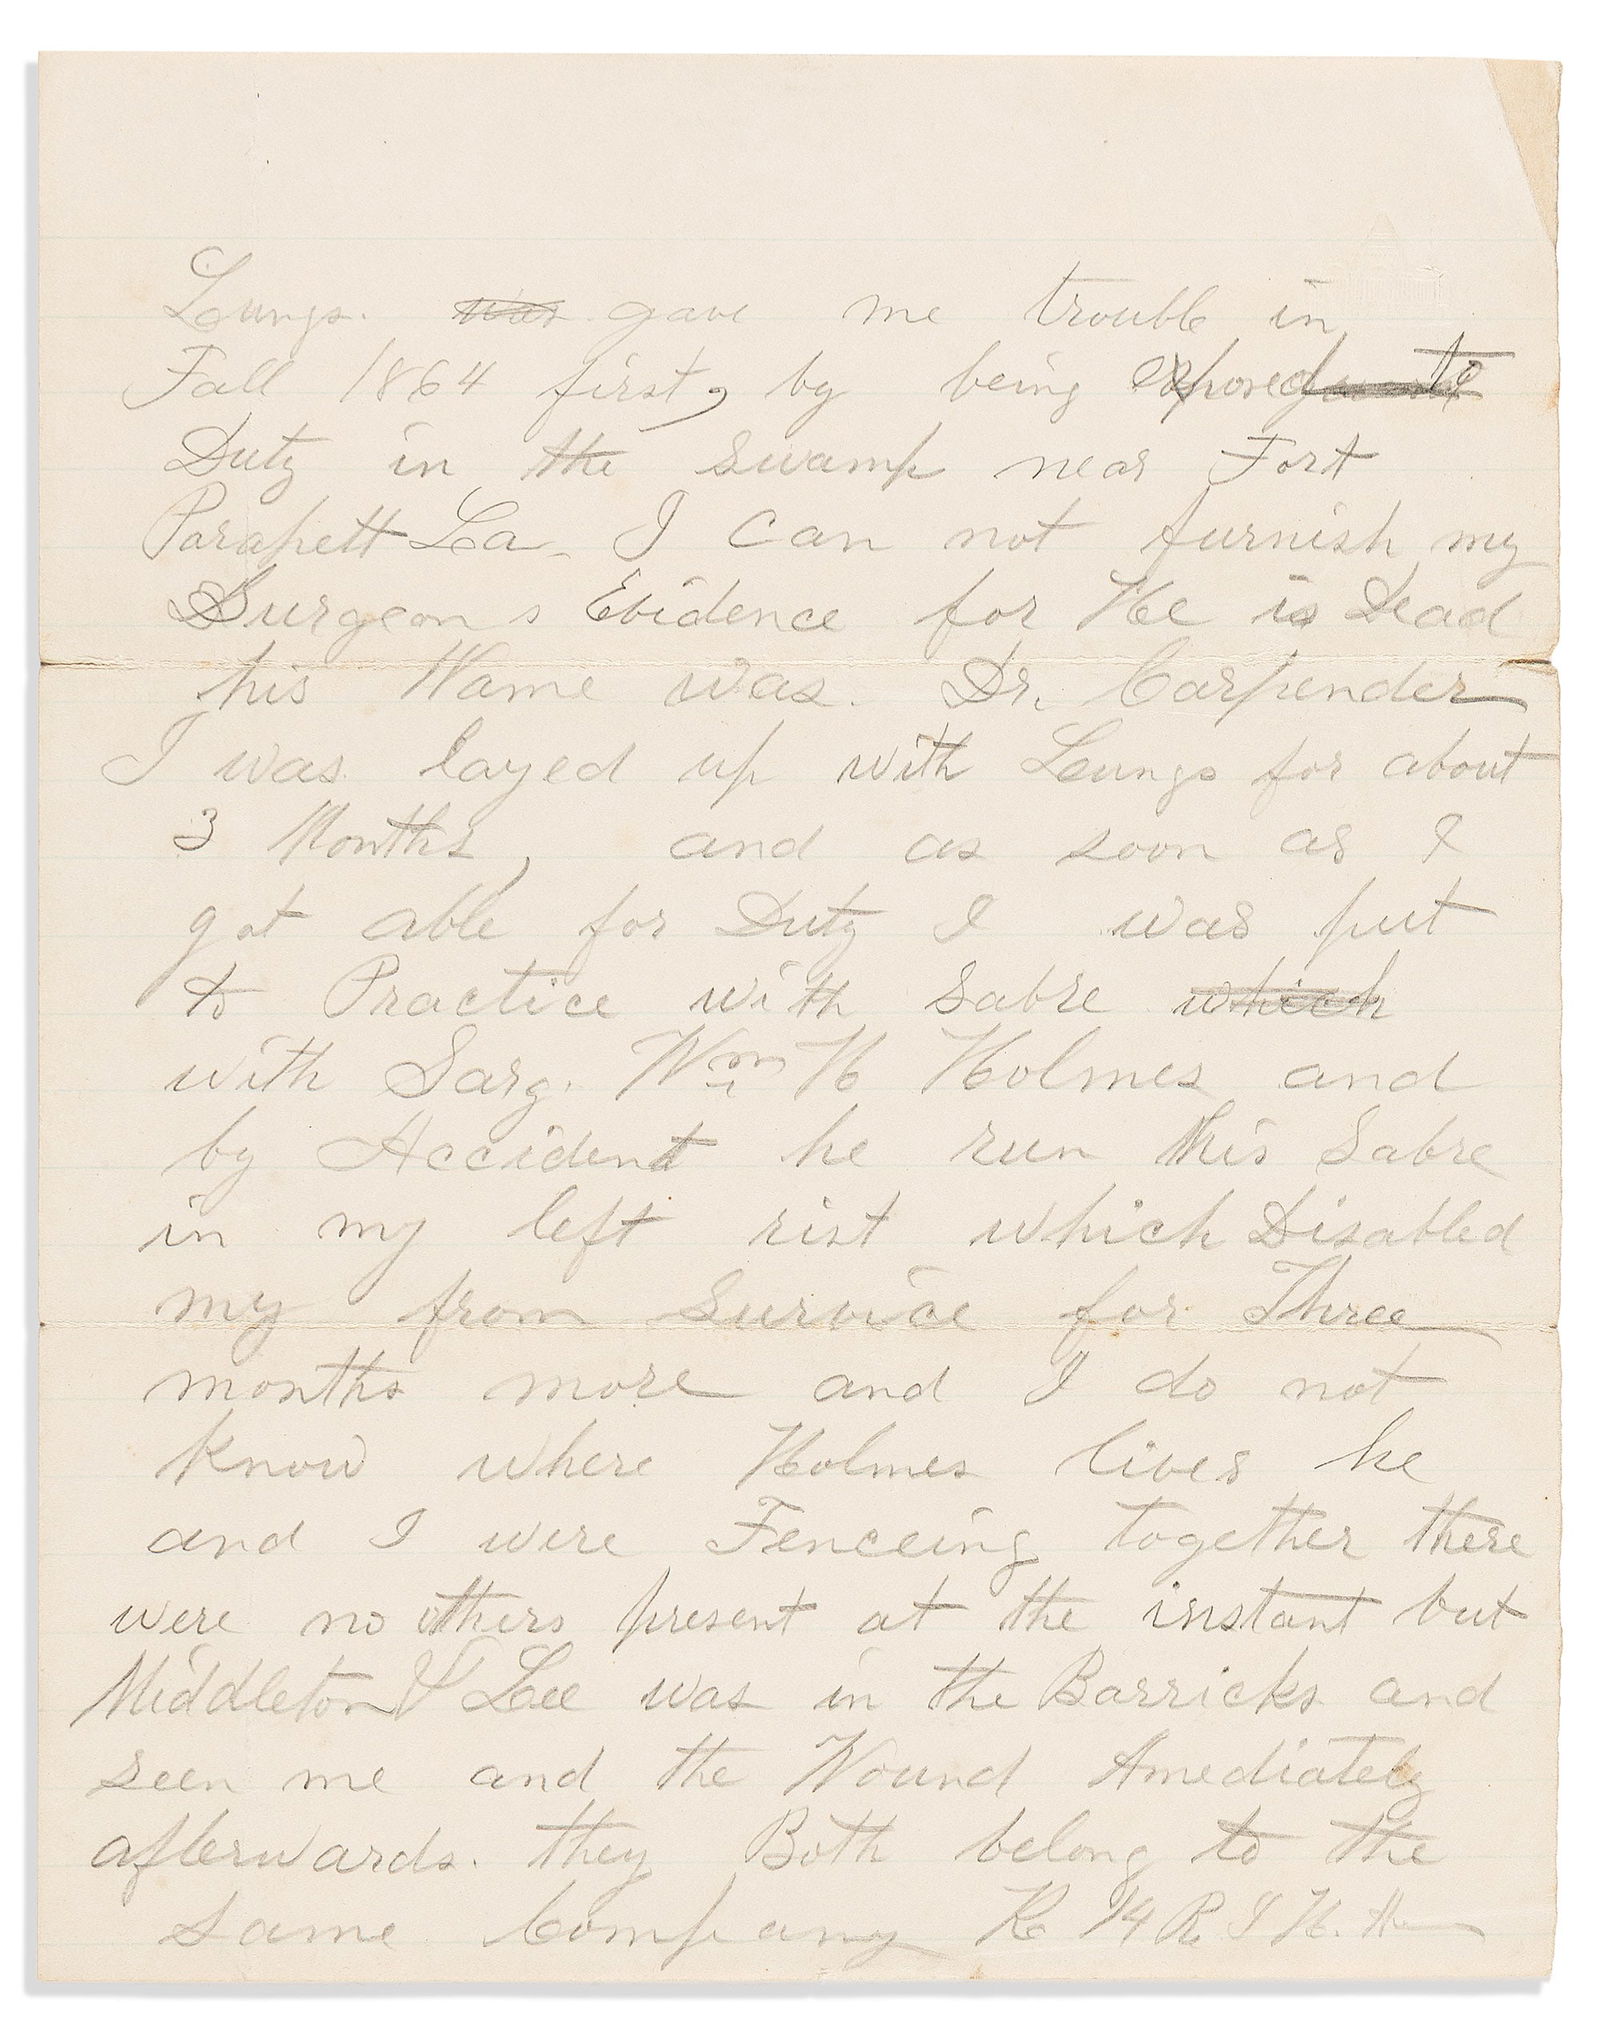 Lungs. was gave me trouble in
Fall 1864 first, by being exposed to
Duty in the swamp near Fort
Parapett La. I can not furnish my
Surgeons Evidence for He is Dead
his Name was. Dr. Carpender
I was layed up with Lungs for about
3 Months, and as soon as I
got able for Duty I was put
to Practice with Sabre which
with Sarg. Wm H Holmes and
by Accident he run his Sabre
in my left rist which Disabled
my from Survice for Three
months more and I do not
Know where Holmes lives he
and I were Fenceing together there
were no others present at the instant but
Middleton & Lee was in the Barricks and
seen me and the Wound Amediately
afterwards. they Both belong to the
same Company K 14 R I H. A